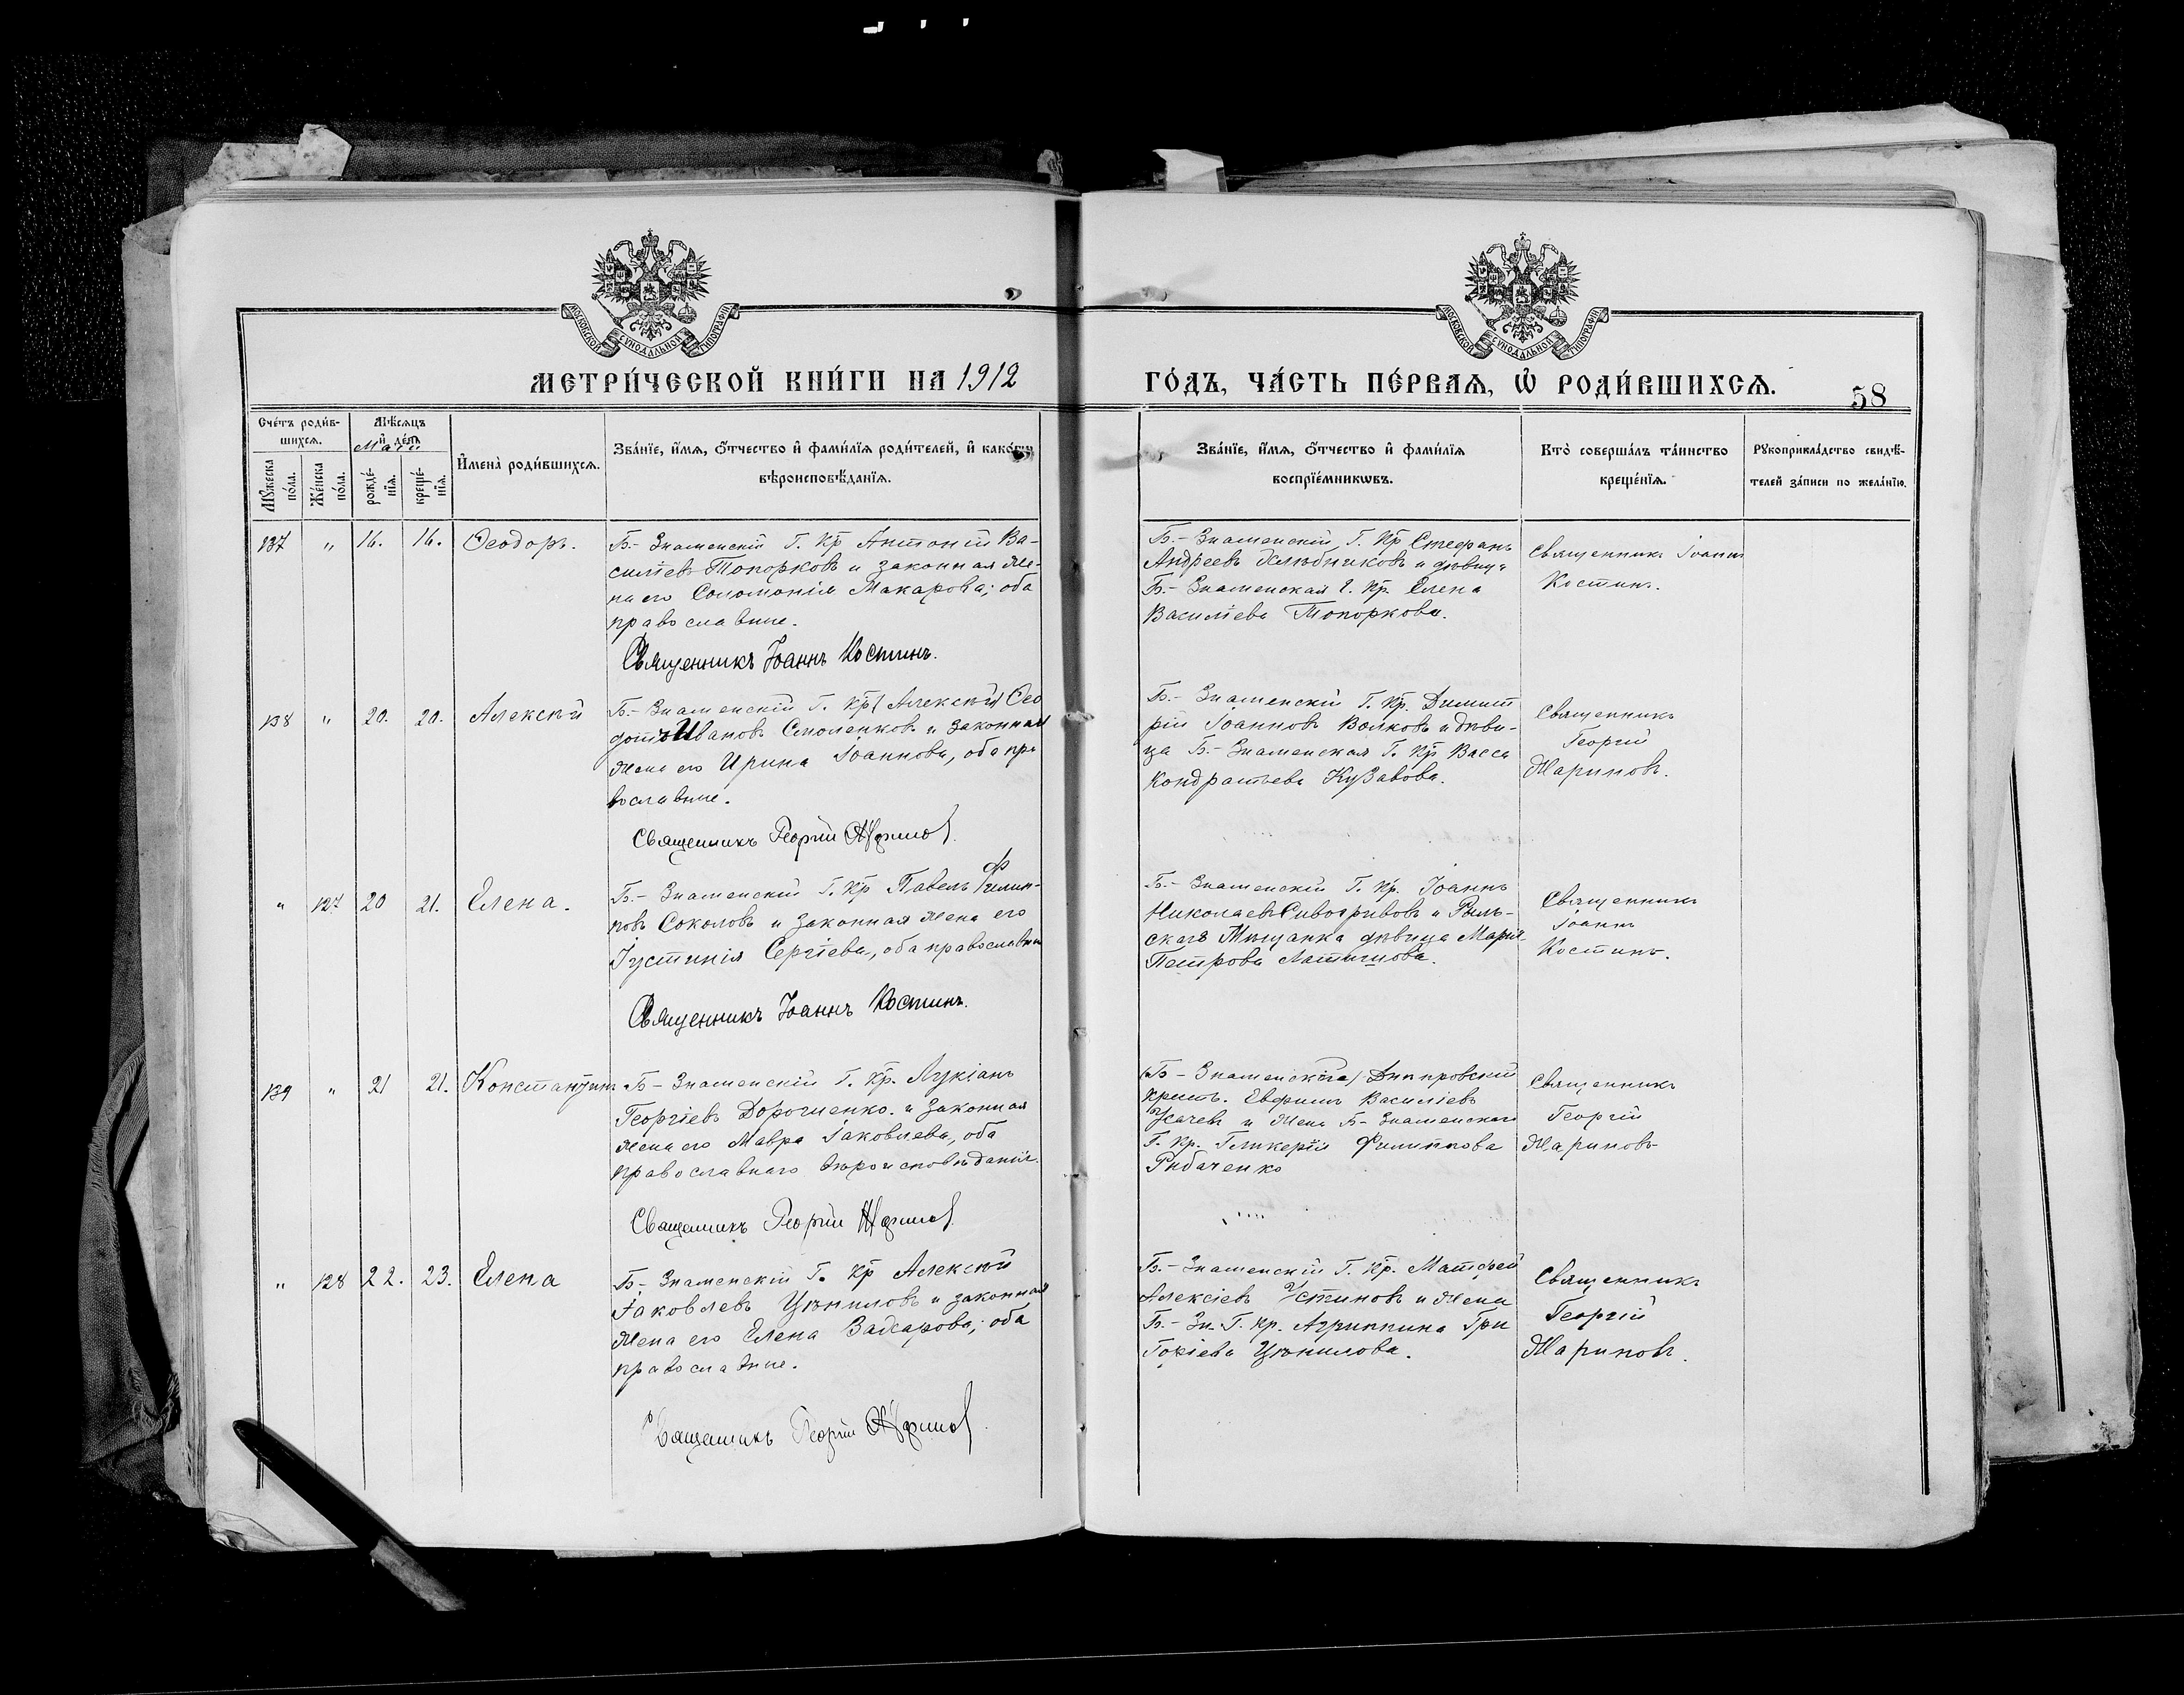 МОСКОВСКОЙ СѴНОДАЛЬНОЙ ТИПОГРАФІИ
МОСКОВСКОЙ СѴНОДАЛЬНОЙ ТИПОГРАФІИ
МЕТРИ́ЧЕСКОЙ КНИ́ГИ НА 1912
ГО́ДЪ, ЧА́СТЬ ПЕ́РВАЯ, Ѡ РОДИ́ВШИХСЯ.
58
Сче́тъ роди́в-
шихся.
Мѣ́сяцъ
и де́нь
Мужеска по́ла.
Же́нска по́ла.
рожде́-
нїя.
креще́-
нїя.
И҆мена̀ роди́вшихся.
Зва́нїе, и҆́мя, ѻ҆́тчество и҆ фами́лїя роди́телей, и҆ како́гѡ
вѣроисповѣ́данїя.
Зва́нїе, и҆́мя, ѻ҆́тчество и҆ фами́лїя
воспрїе́мникѡвъ.
Кто̀ соверша́лъ та́инство
креще́нїя.
Рꙋкоприкла́дство свидѣ́-
телей за́писи по жела́нїю.
137 " 16. 16. Ѳеодоръ.
Б.- Знаменскій Г. Кр Антоній Ва-
силіевъ Топорковъ и законная же-
на его Соломонія Макарова; оба
православные.
Священникъ Іоаннъ Костинъ.
Б.- Знаменскій Г. Кр Стефанъ
Андреевъ Хлѣбниковъ и дѣвица
Б.- Знаменская Г. Кр. Елена
Василіева Топоркова.
Священникъ Іоаннъ
Костинъ.
138 " 20. 20. Алексѣй
Б.- Знаменскій Г. Кр Алексѣй Ѳео
Ивановъ Смоленковъ и законная
жена его Ирина Іоаннова, оба пра
вославные.
Священникъ Георгій Жариновъ
Б.- Знаменскій Г. Кр. Димит
рій Іоанновъ Волковъ и дѣви-
ца Б.- Знаменская Г. Кр Васса
Кондратьева Кузавова.
Священникъ
Георгій
Жариновъ.
" 127 20 21. Елена.
Б.- Знаменскій Г. Кр Павелъ Филип-
повъ Соколовъ и законная жена его
Іустинія Сергіева, оба православны
Священникъ Іоаннъ Костинъ.
Б.- Знаменскій Г. Кр. Іоаннъ
Николаевъ Сивогривовъ и Рыль-
ская Мѣщанка дѣвица Марія
Петрова Латышова.
Священникъ
Іоаннъ
Костинъ.
139 " 21 21. Константинъ
Б- Знаменскій Г. Кр. Лукіанъ
Георгіевъ Дорошенко и законная
жена его Мавра Іаковлева, оба
православнаго вѣроисповѣданія.
Священникъ Георгій Жариновъ
Днѣпровскій
Крест. Евфимъ Василіевъ
Усачевъ и жена Б- Знаменскаго
Г. Кр. Гликерія Филиппова
Рибаченко
Священникъ
Георгій
Жариновъ
" 128 22. 23. Елена
Б- Знаменскій Г. Кр Алексѣй
Іаковлевъ Цѣпиловъ и законная
жена его Елена Захарова; оба
православные.
Священникъ Георгій Жариновъ
Б.- Знаменскій Г. Кр. Матѳей
Алексіевъ Устиновъ и жена
Б.- Зн. Г. Кр. Агриппина Гри
горіева Цѣпилова.
Священникъ
Георгій
Жариновъ.